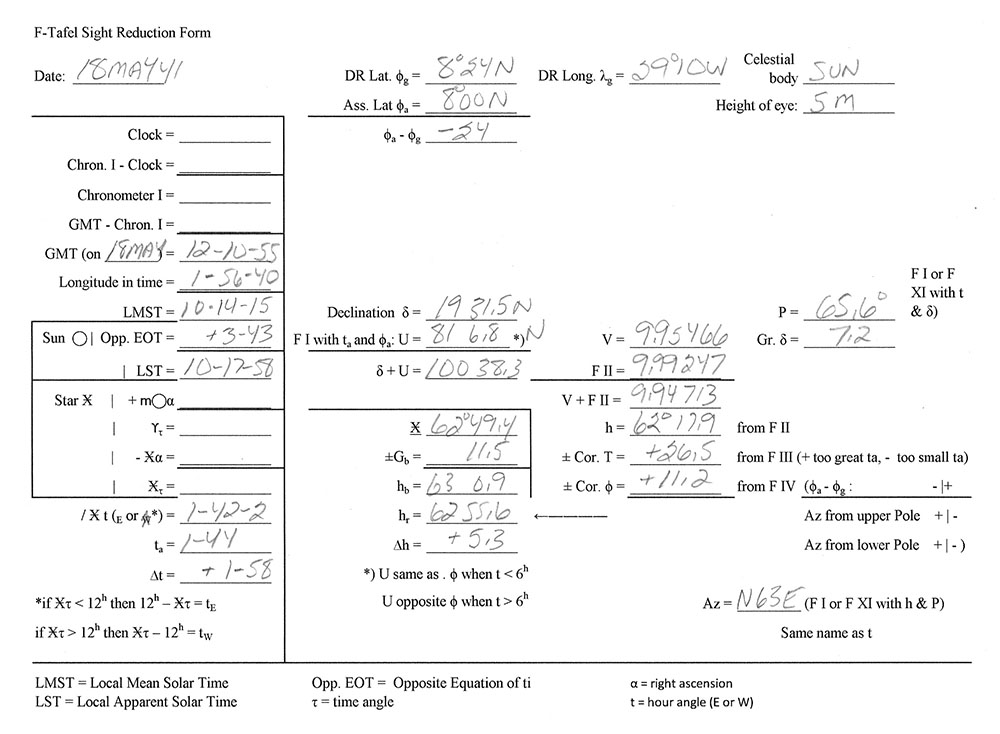 F-Tafel Sight Reduction Form
Date: 18MAY41
DR Lat. ϕg = 8°24N DR Long. λg = 29°10W Celestial body SUN
Ass. Lat ϕa = 8°00N Height of eye: 5M
ϕa - ϕg -24
Clock =
Chron. I - Clock =
Chronometer I =
GMT - Chron. I =
GMT (on 18MAY) = 12-10-55
Longitude in time = 1-56-40
LMST = 10-14-15
Sun ◯ | Opp. EOT = +3-43
| LST = 10-17-58
Star Ӿ | + m◯α
| ϒτ =
| - Ӿα =
| Ӿτ =
/ Ӿ t (E or W*) = 1-42-2
ta = 1-44
Δt = +1-58
*if Ӿτ < 12h then 12h – Ӿτ = tE
if Ӿτ > 12h then Ӿτ – 12h = tW
Declination δ = 19 31,5N
F I with ta and ϕa: U = 81 6,8 *)N
δ + U = 100 38,3
Ӿ 62°49,4
±Gb = 11,5
hb = 63 0,9
hr = 62 55,6
Δh = +5,3
*) U same as . ϕ when t < 6h
U opposite ϕ when t > 6h
V = 9,95466
F II = 9,99247
V + F II = 9,94713
h = 62°17,9 from F II
± Cor. T = +26,5 from F III (+ too great ta, - too small ta)
± Cor. ϕ = +11,2 from F IV (ϕa - ϕg : - |+
Az from upper Pole + | -
Az from lower Pole + | - )
P = 65,6°
Gr. δ = 7,2
F I or F
XI with t
& δ)
Az = N63E (F I or F XI with h & P)
Same name as t
LMST = Local Mean Solar Time Opp. EOT = Opposite Equation of ti α = right ascension
LST = Local Apparent Solar Time τ = time angle t = hour angle (E or W)